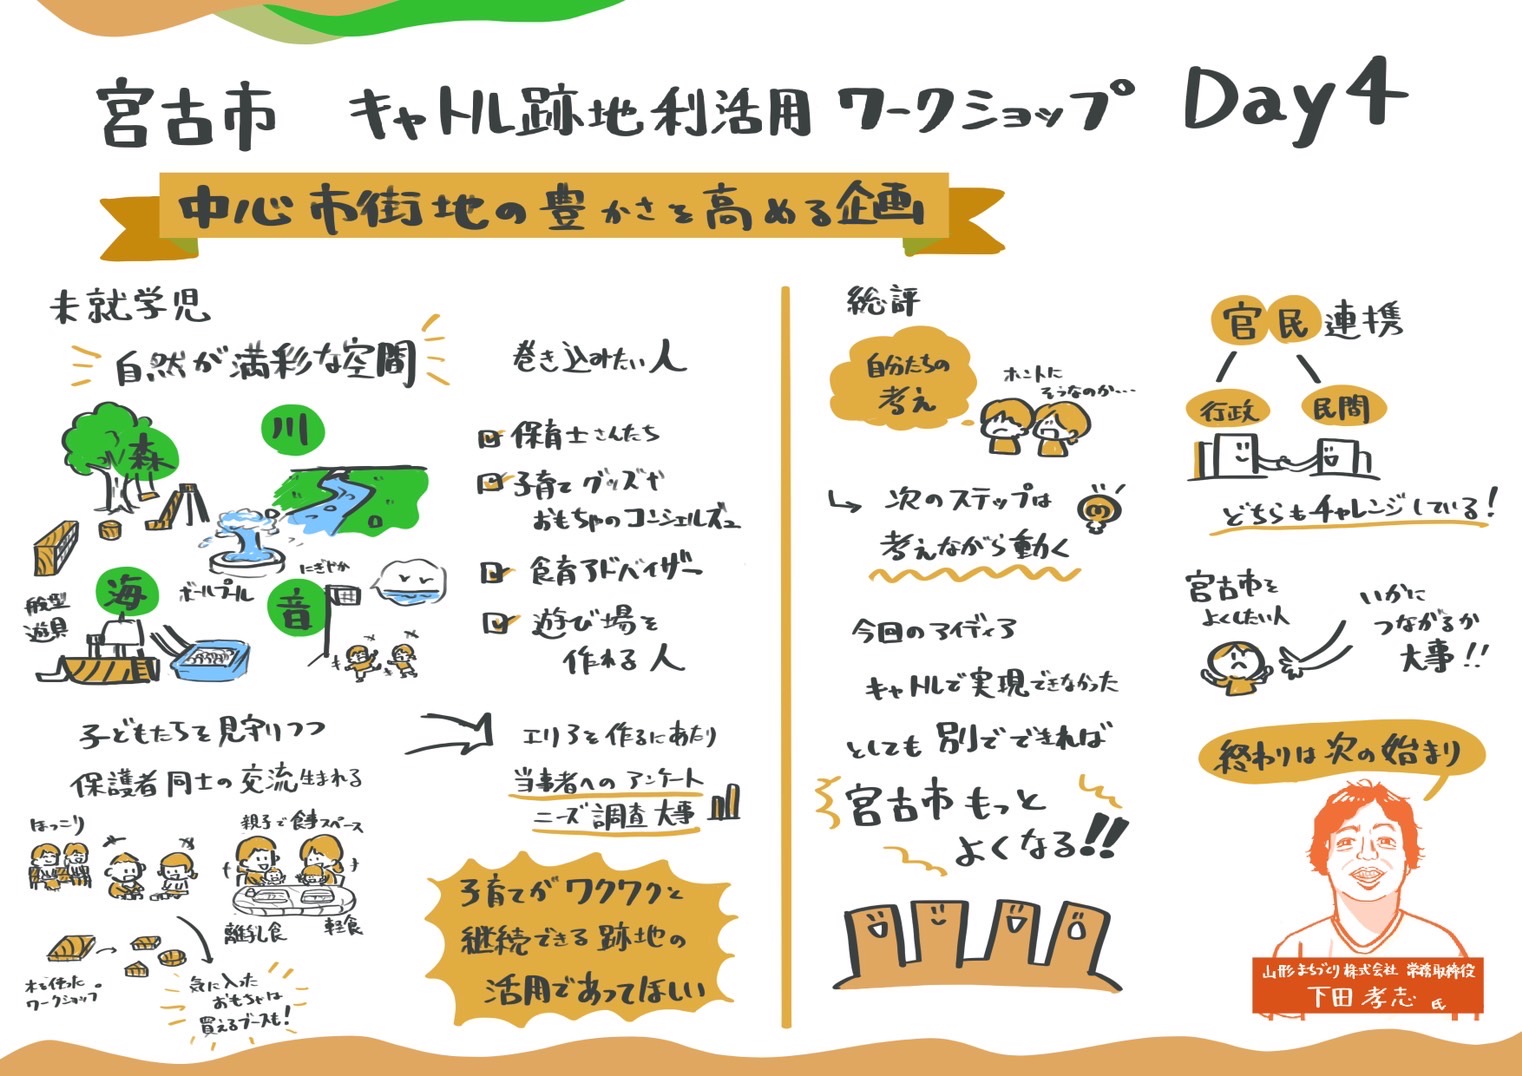 宮古市 キャトル跡地利活用ワークショップ Day4
中心市街地の豊かさを高める企画
未就学児
自然が満彩な空間
森
川
海
音
船型
遊具
ボールプール
にぎやか
子どもたちを見守りつつ
保護者同士の交流生まれる
ほっこり
親子で食事スペース
離乳食
軽食
木を使った
ワークショップ
気に入った
おもちゃは
買えるブースも!
巻き込みたい人
保育士さんたち
子育てグッズや
おもちゃのコンシェルジュ
食育アドバイザー
遊び場を
作れる人
エリアを作るにあたり
当事者へのアンケート
ニーズ調査大事
子育てがワクワクと
継続できる跡地の
活用であってほしい
総評
自分たちの
考え
ホントに
そうなのか…
次のステップは
考えながら動く
今回のアイディア
キャトルで実現できなかった
としても別でできれば
宮古市もっと
よくなる!!
官民連携
行政
民間
どちらもチャレンジしている!
宮古市を
よくしたい人
いかに
つながるか
大事!!
終わりは次の始まり
山形まちづくり株式会社 常務取締役
下田孝志 氏